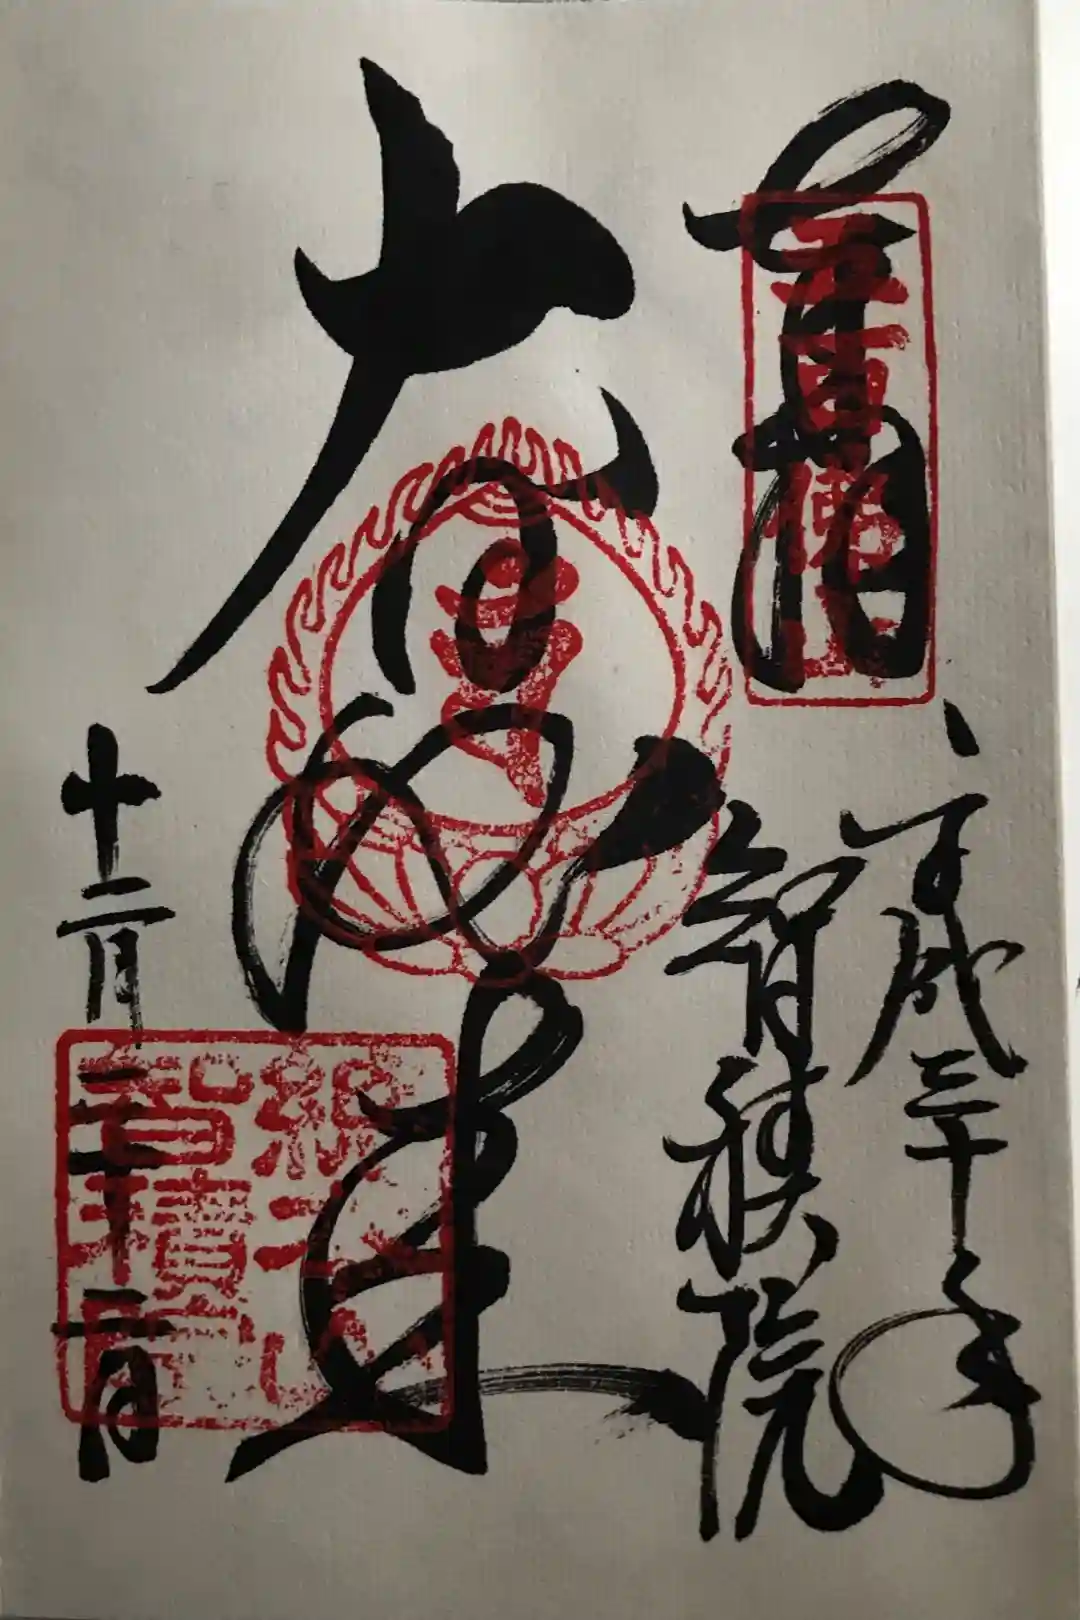 奉拝
平成三十年
智積院
大日如来
十二月二十二日
総本山
智積院